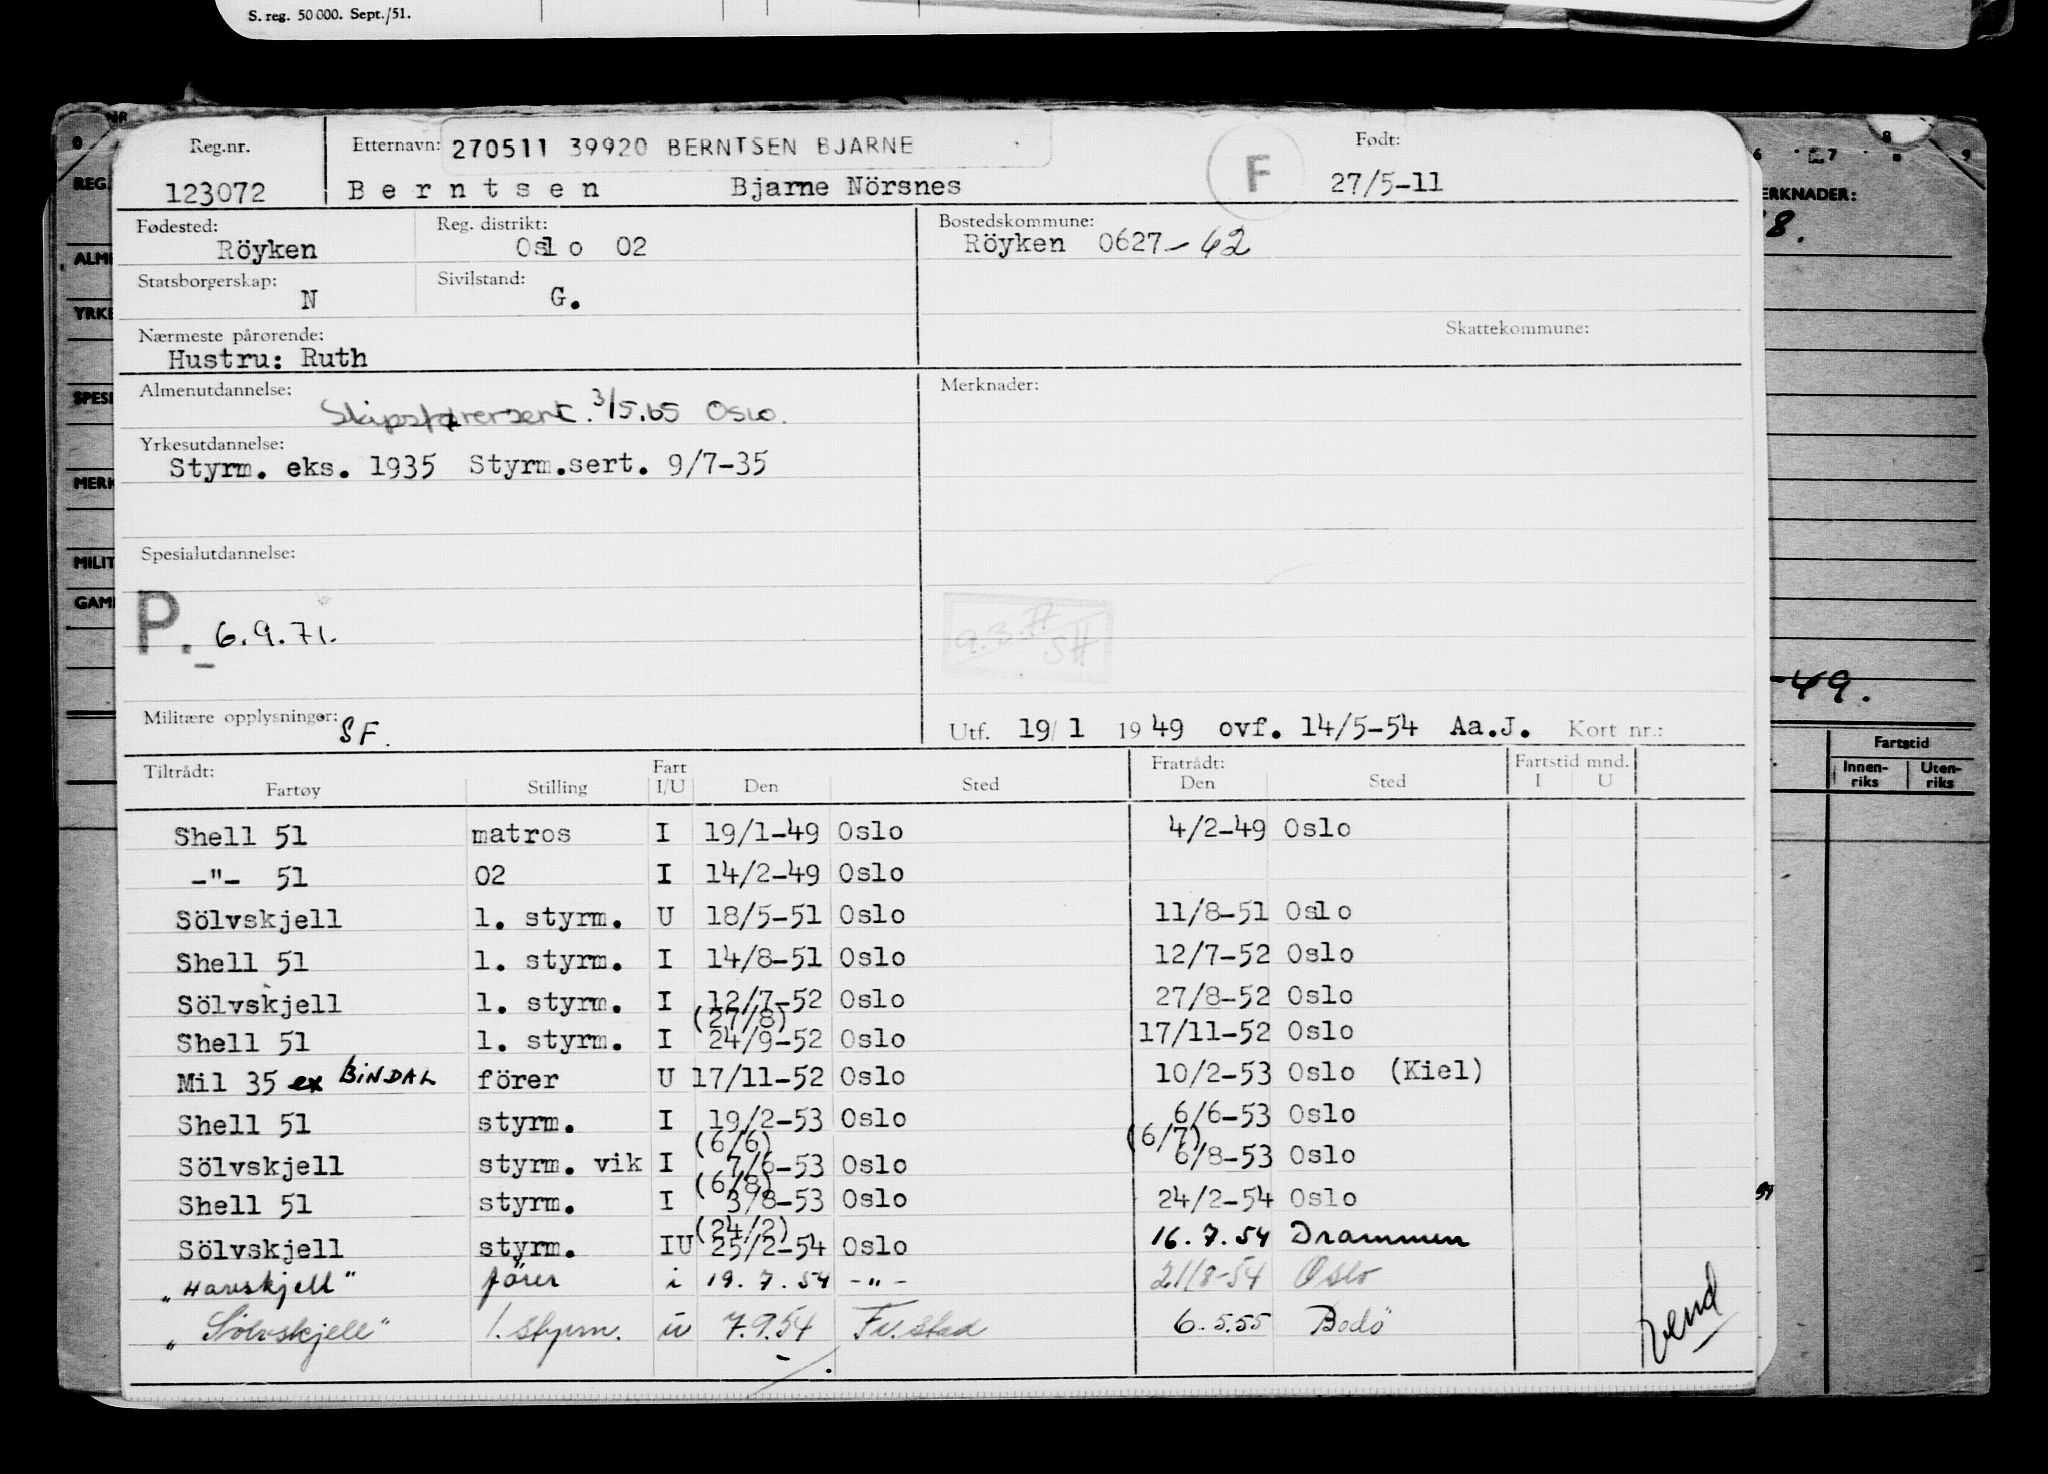 S. reg. 50 000. Sept./51.
Reg.nr. Etternavn: 270511 39920 BERNTSEN BJARNE F Født:
123072 Berntsen Bjarne Nörsnes 27/5-11
Fødested: Reg. distrikt: Bostedskommune:
Röyken Oslo 02 Röyken 0627-42
Statsborgerskap: Sivilstand:
N G.
Nærmeste pårørende: Skattekommune:
Hustru: Ruth
Almenutdannelse: Merknader:
Skipsførersert. 3/5.65 Oslo.
Yrkesutdannelse:
Styrm. eks. 1935 Styrm.sert. 9/7-35
Spesialutdannelse:
P. 6.9.71.
Militære opplysninger: SF.
Utf. 19/1 1949 ovf. 14/5-54 Aa.J. Kort nr.:
Tiltrådt: Fart Fratrådt: Fartstid mnd.
Fartøy Stilling I/U Den Sted Den Sted I U
Shell 51 matros I 19/1-49 Oslo 4/2-49 Oslo
-"- 51 02 I 14/2-49 Oslo
Sölvskjell 1. styrm. U 18/5-51 Oslo 11/8-51 Oslo
Shell 51 1. styrm. I 14/8-51 Oslo 12/7-52 Oslo
Sölvskjell 1. styrm. I 12/7-52 Oslo 27/8-52 Oslo
(27/8)
Shell 51 1. styrm. I 24/9-52 Oslo 17/11-52 Oslo
Mil 35 ex BINDAL förer U 17/11-52 Oslo 10/2-53 Oslo (Kiel)
Shell 51 styrm. I 19/2-53 Oslo 6/6-53 Oslo
(6/6) (6/7)
Sölvskjell styrm. vik I 7/6-53 Oslo 6/8-53 Oslo
(6/8)
Shell 51 styrm. I 3/8-53 Oslo 24/2-54 Oslo
(24/2)
Sölvskjell styrm. IU 25/2-54 Oslo 16.7.54 Drammen
"Havskjell" förer i 19.7.54 -"- 21/8-54 Oslo
"Sölvskjell" 1. styrm. iu 7.9.54 Fr.stad 6.5.55 Bodö
vend
REG.
ALM
YRKE
SPESI
MERK
MILIT
GAM
6 7 8 9
ERKNADER:
8.
-49.
Fartstid
Innen-riks Uten-riks